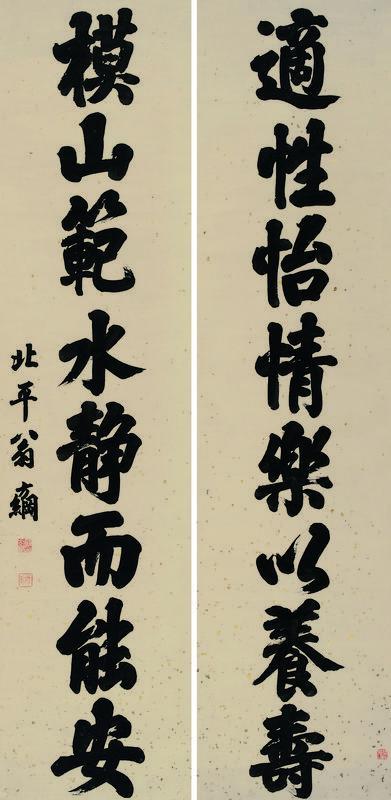 適性怡情樂以養壽
模山範水静而能安
北平翁方綱